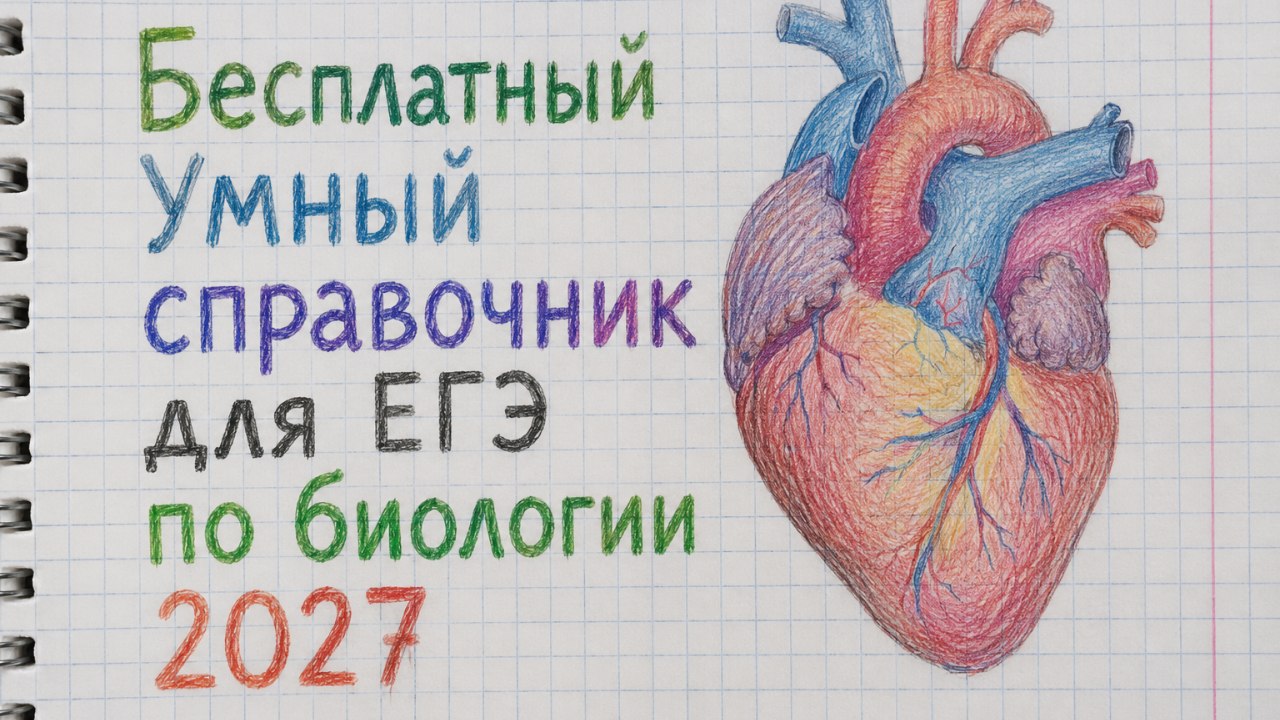 Бесплатный
Умный
справочник
для ЕГЭ
по биологии
2027